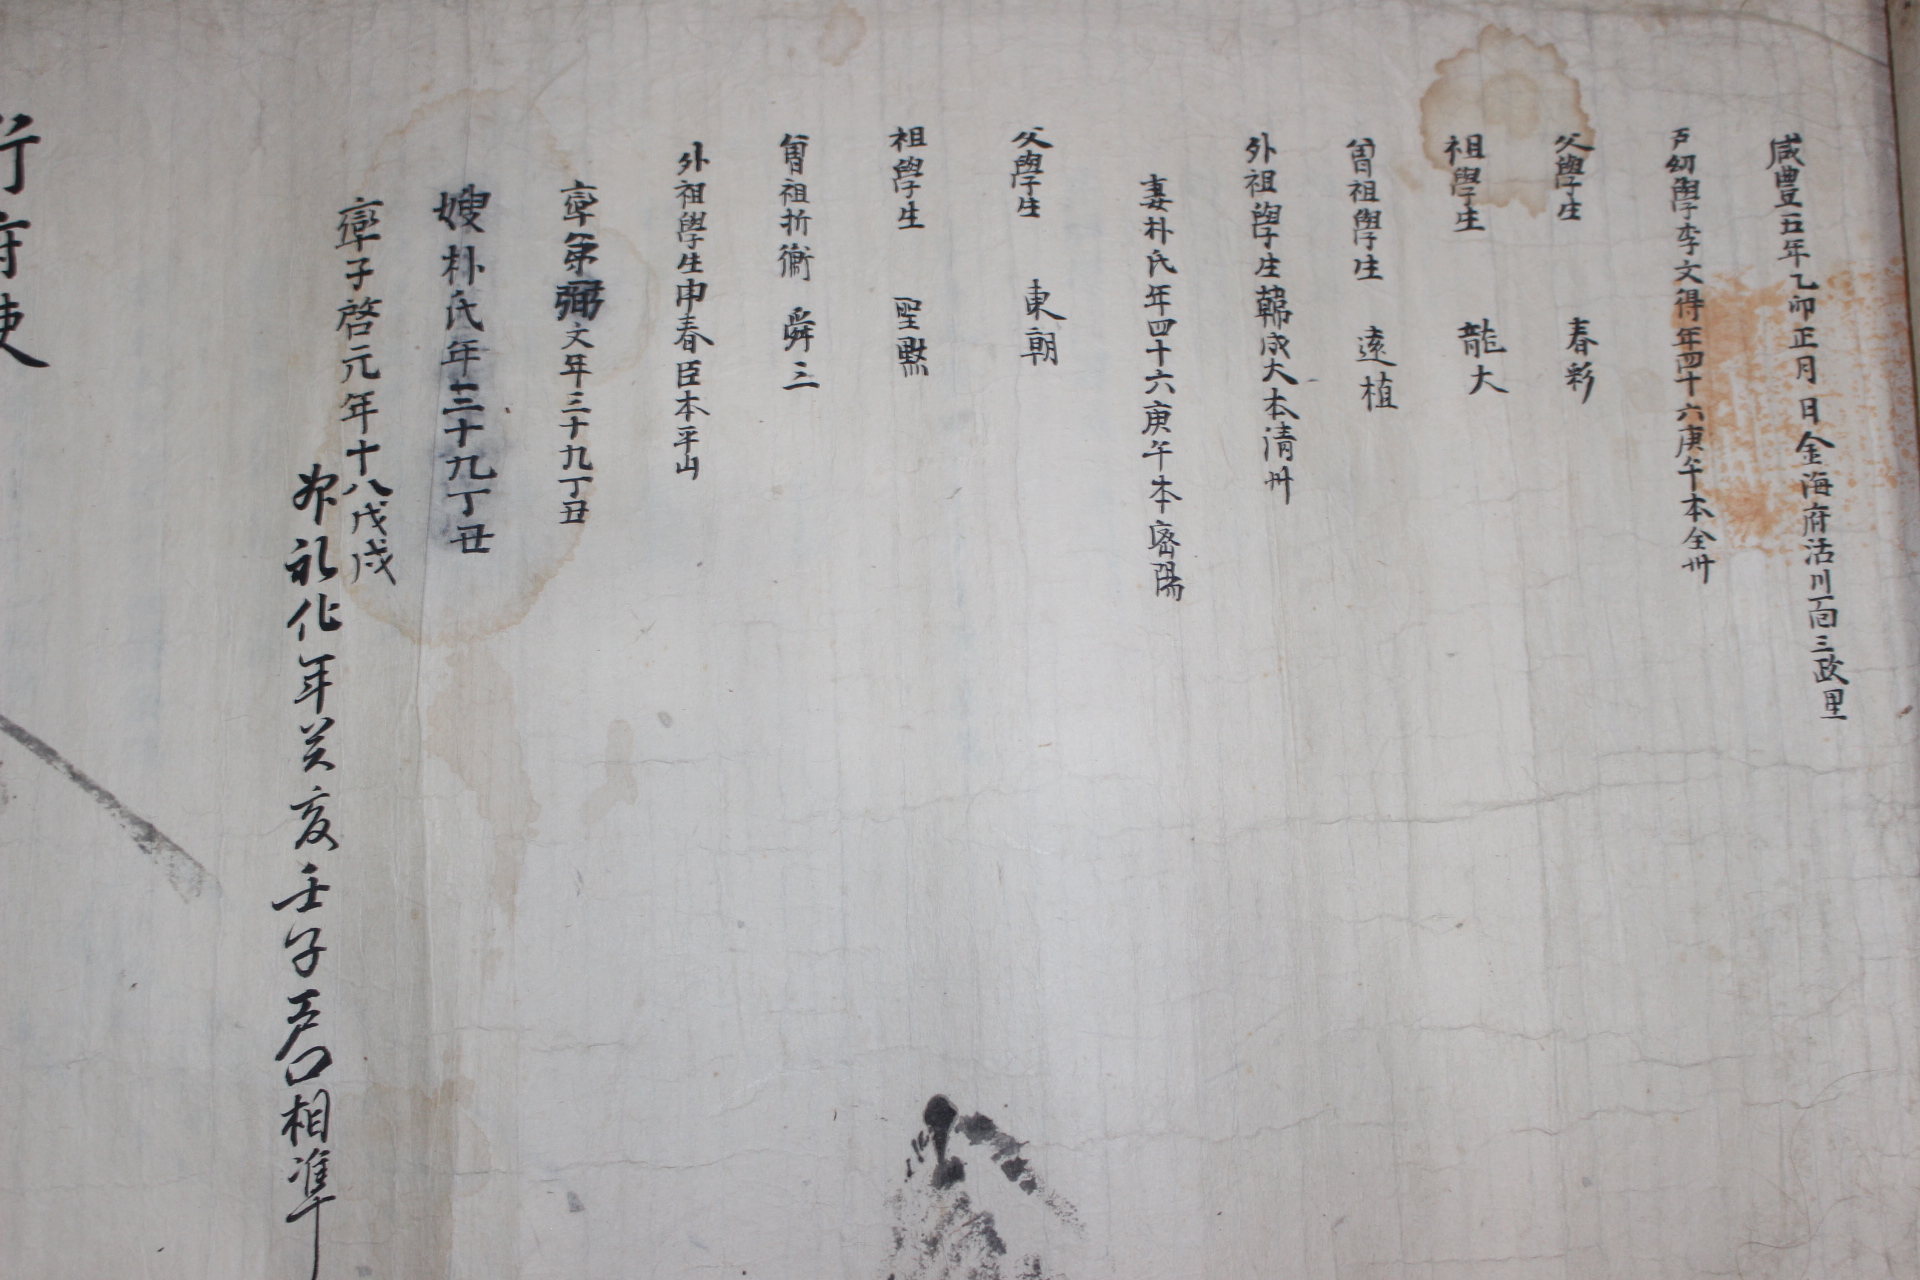 咸豊五年乙卯正月 日金海府活川面三政里
戶幼學李文得年四十六庚午本全州
父學生 春彩
祖學生 龍大
曾祖學生 遠植
外祖學生韓成大本清州
妻朴氏年四十六庚午本密陽
父學生 東朝
祖學生 聖默
曾祖折衝 舜三
外祖學生申春臣本平山
率弟弼文年三十九丁丑
嫂朴氏年三十九丁丑
率子啓元年十八戊戌
年癸亥壬子戶口相準
行府使